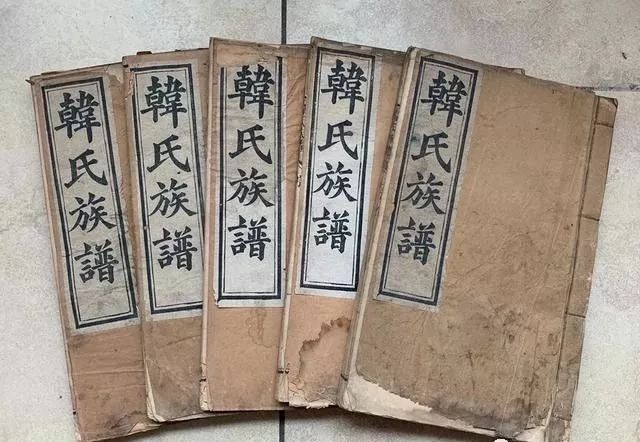 韓氏族譜
韓氏族譜
韓氏族譜
韓氏族譜
韓氏族譜